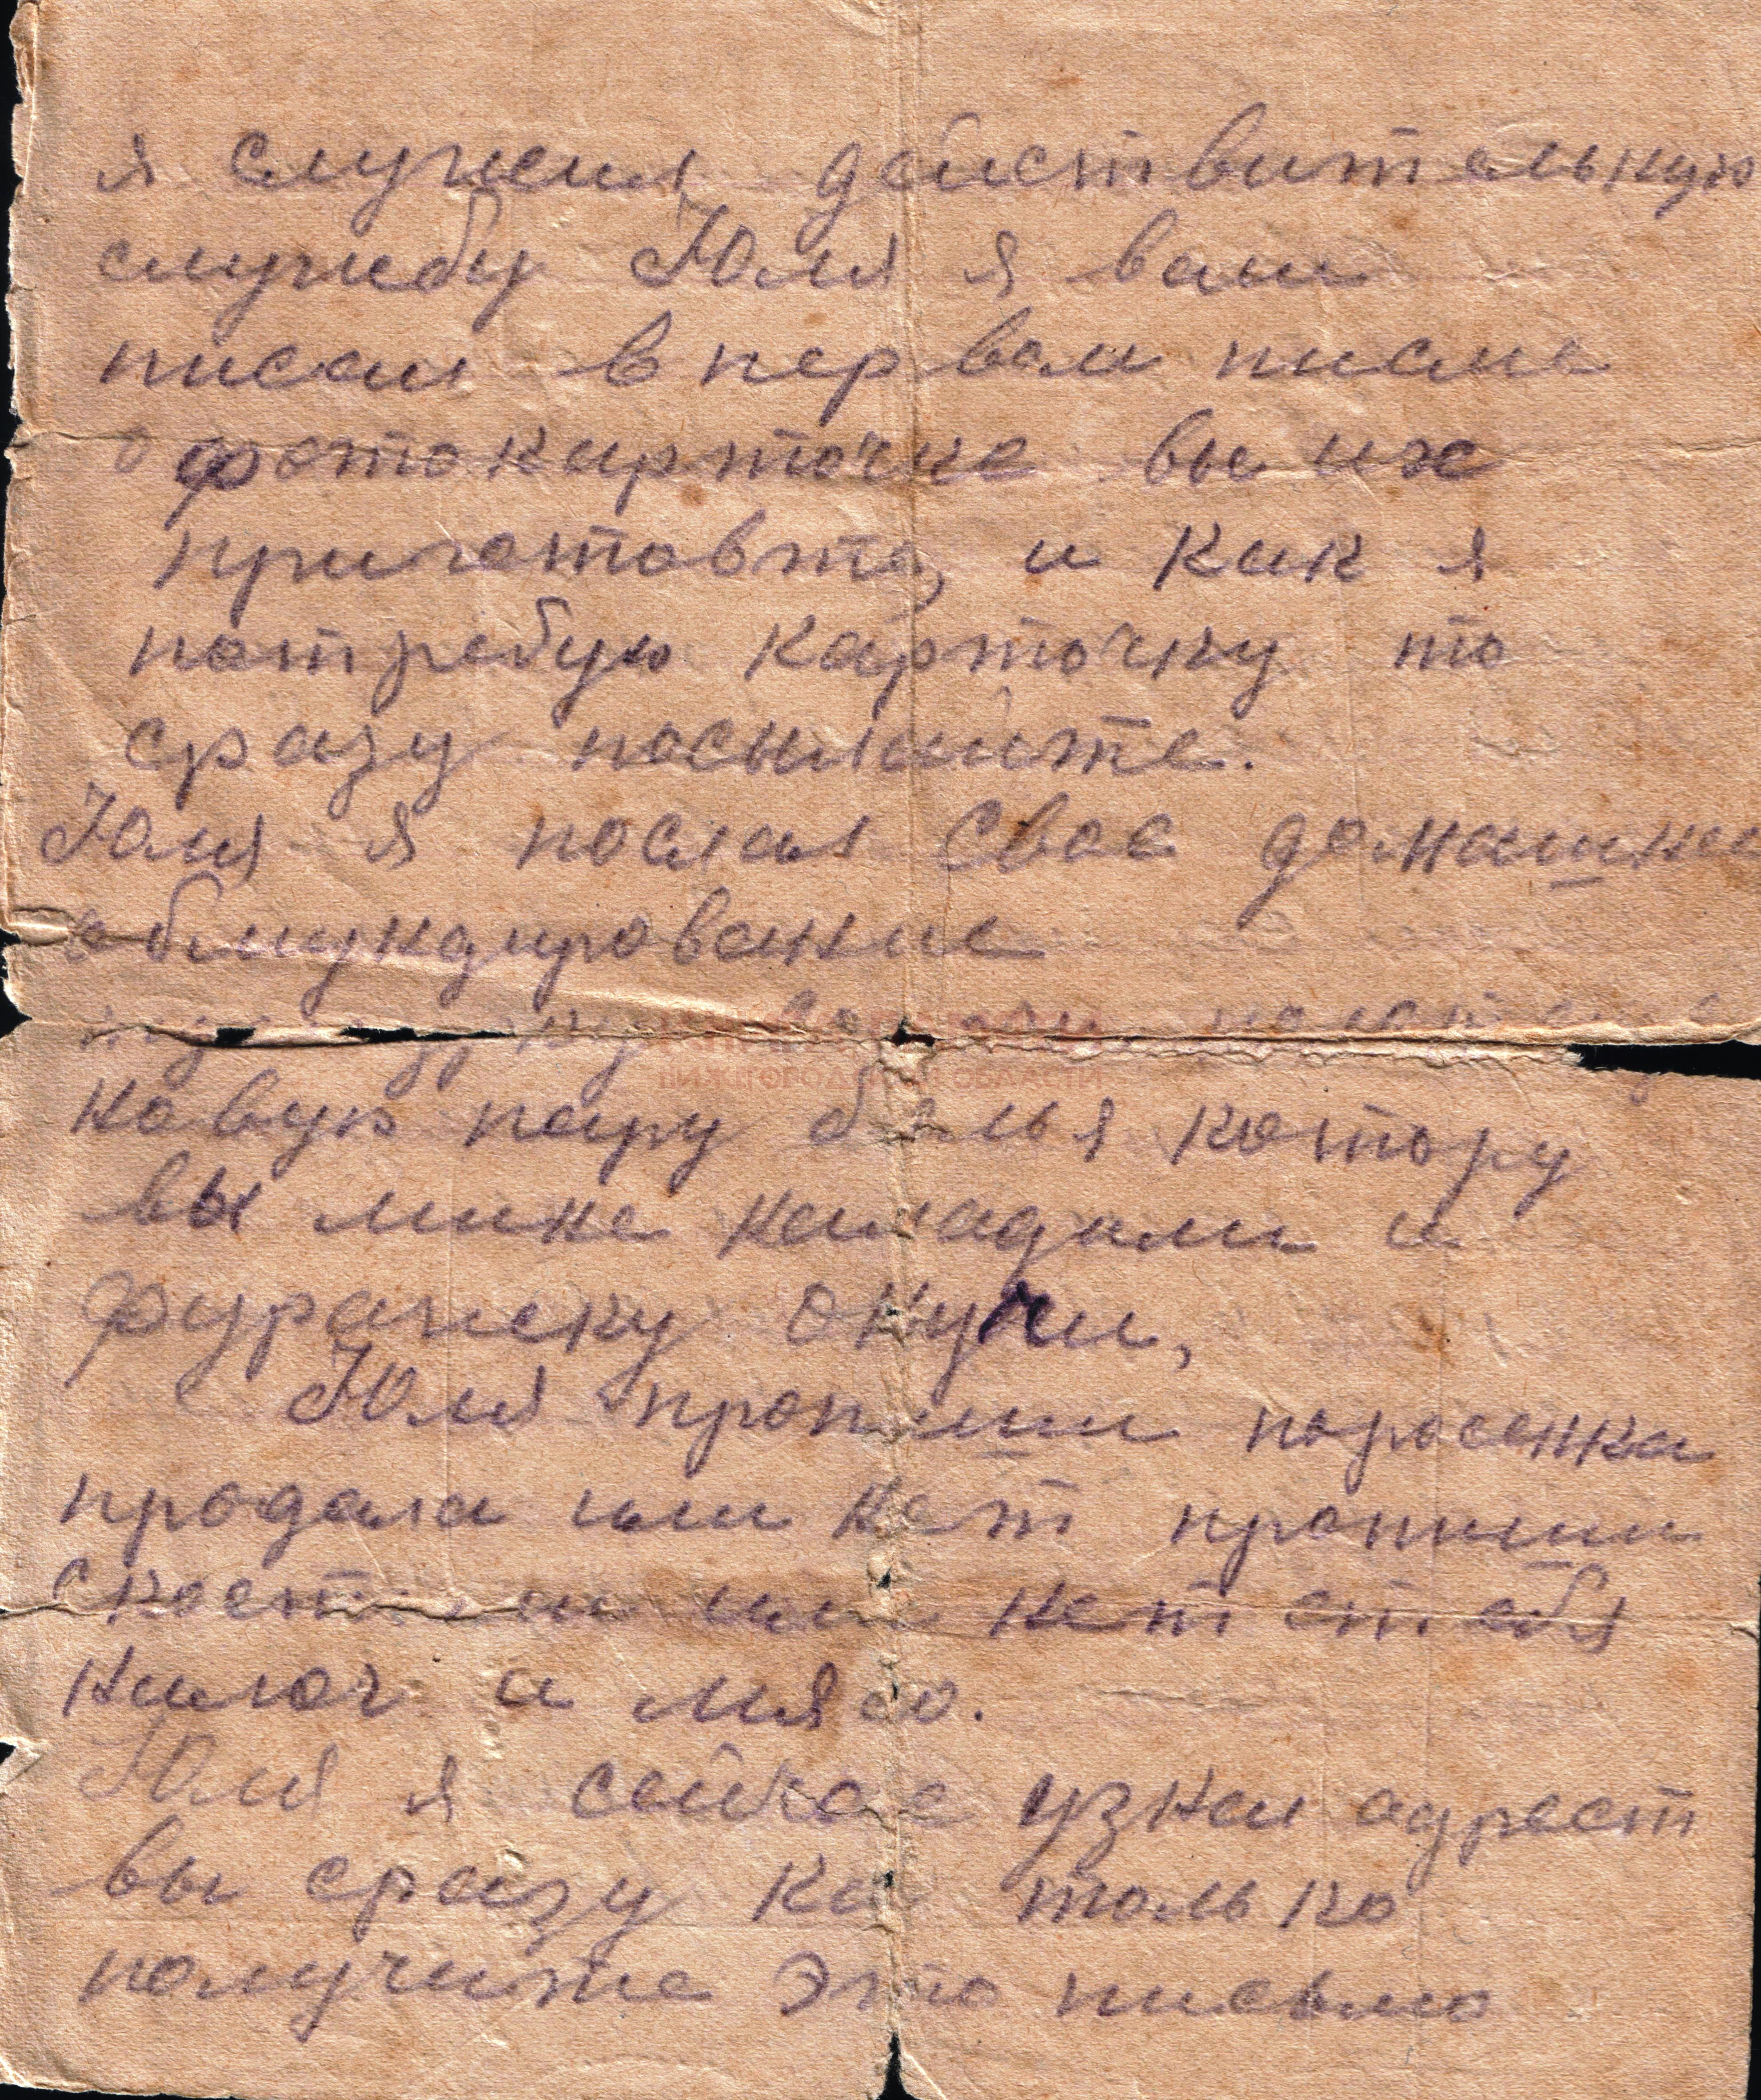 я служил действительную
службу Юля я вам
писал в первом писме
о фотокарточке вы их
приготовте, и как я
потребую карточку то
сразу посылайте.
Юля я послал свое домашнее
обмундирование
новую пару белья котору
вы мине накладали и
фуражку онучи,
Юля пропиши поросенка
продала или нет пропиши
или нет с тебя
налог и мясо.
Юля я сейчас узнал адрест
вы сразу как только
получите это письмо